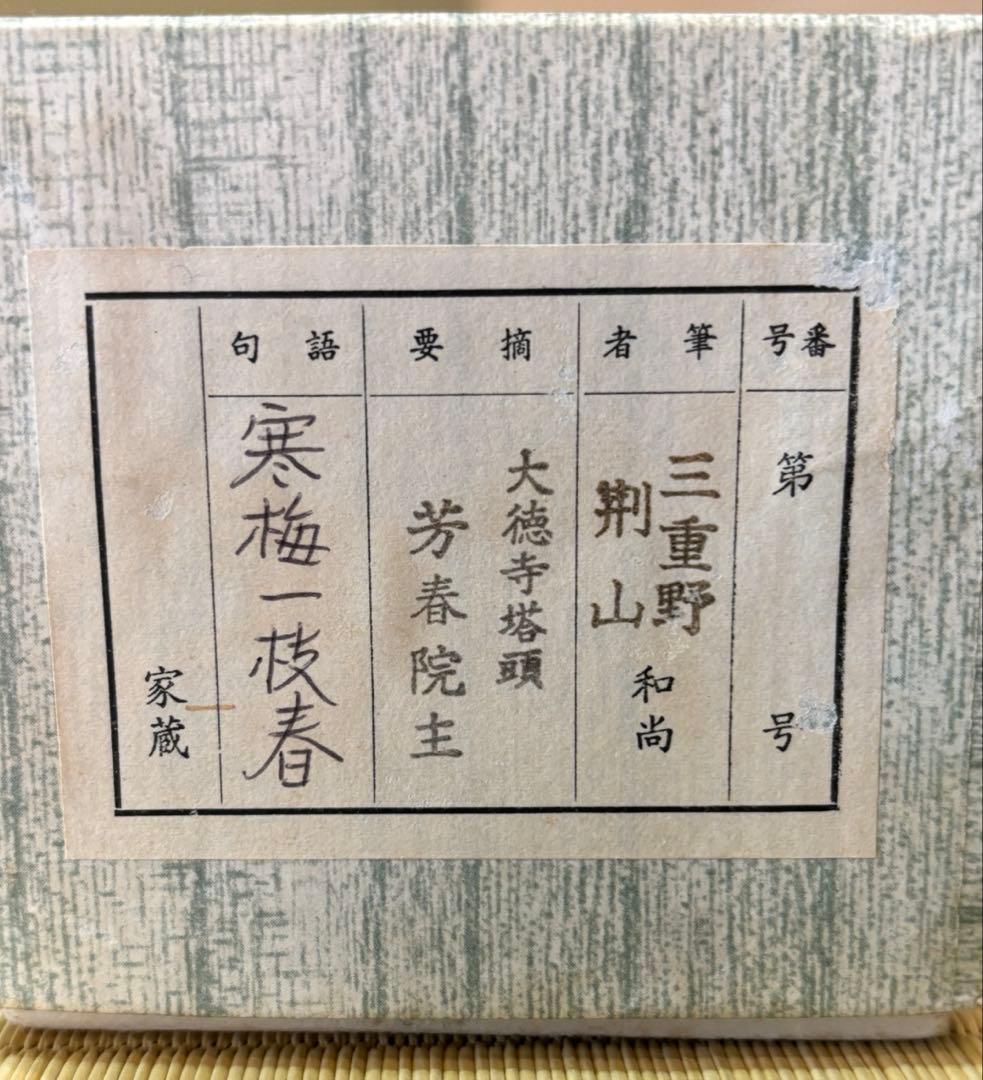 番号
第 号
筆者
三重野
荆山
和尚
摘要
大徳寺塔頭
芳春院主
語句
寒梅一枝春
家蔵